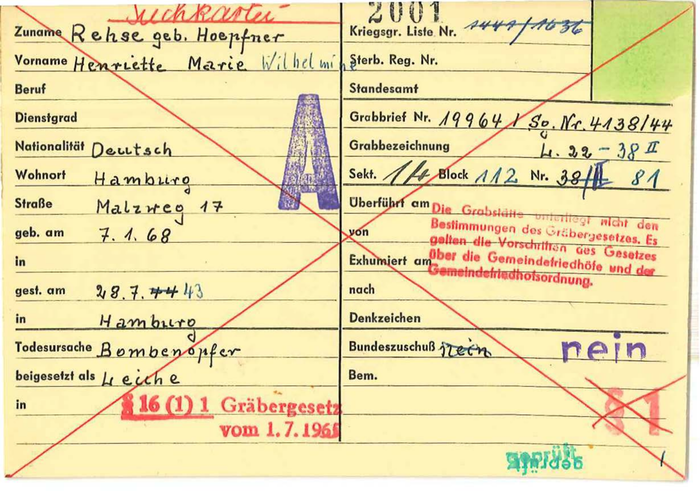 Suchkartei
2001
Zuname Rehse geb. Hoepfner
Vorname Henriette Marie Wilhelmine
Beruf
Dienstgrad
Nationalität Deutsch
Wohnort Hamburg
Straße Malzweg 17
geb. am 7.1.68
in
gest. am 28.7. 44 43
in Hamburg
Todesursache Bombenopfer
beigesetzt als Leiche
in
§ 16 (1) 1 Gräbergesetz
vom 1.7.1965
A
Kriegsgr. Liste Nr. 1441/1636
Sterb. Reg. Nr.
Standesamt
Grabbrief Nr. 19964 / Sg. Nr. 4138/44
Grabbezeichnung L. 22 - 38 II
Sekt. Block 112 Nr. 38/II 81
Überführt am
von
Exhumiert am
nach
Die Grabstätte unterliegt nicht den
Bestimmungen des Gräbergesetzes. Es
gelten die Vorschriften des Gesetzes
über die Gemeindefriedhöfe und der
Gemeindefriedhofsordnung.
Denkzeichen
Bundeszuschuß nein nein
Bem.
§ 1
geprüft
geprüft
1